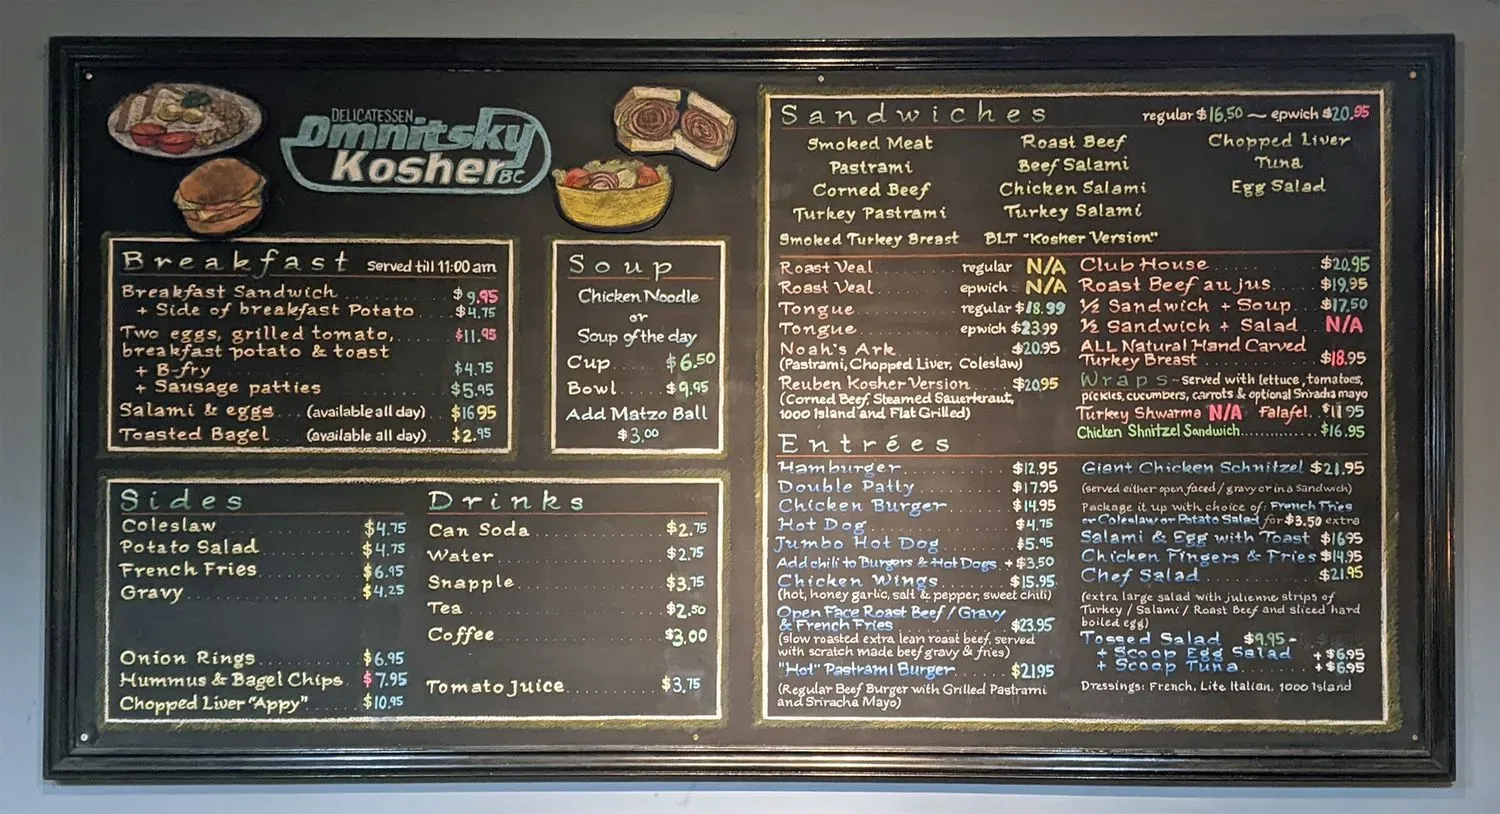 DELICATESSEN
Omnitsky
Kosher BC
Breakfast Served till 11:00 am
Breakfast Sandwich $9.95
+ Side of breakfast Potato $4.75
Two eggs, grilled tomato, $11.95
breakfast potato & toast
+ B-fry $4.75
+ Sausage patties $5.95
Salami & eggs (available all day) $16.95
Toasted Bagel (available all day) $2.95
Soup
Chicken Noodle
or
Soup of the day
Cup $6.50
Bowl $9.95
Add Matzo Ball
$3.00
Sides
Coleslaw $4.75
Potato Salad $4.75
French Fries $6.95
Gravy $4.25
Onion Rings $6.95
Hummus & Bagel Chips $7.95
Chopped Liver "Appy" $10.95
Drinks
Can Soda $2.75
Water $2.75
Snapple $3.75
Tea $2.50
Coffee $3.00
Tomato Juice $3.75
Sandwiches regular $16.50 — epwich $20.95
Smoked Meat Roast Beef Chopped Liver
Pastrami Beef Salami Tuna
Corned Beef Chicken Salami Egg Salad
Turkey Pastrami Turkey Salami
Smoked Turkey Breast BLT "Kosher Version"
Roast Veal regular N/A
Roast Veal epwich N/A
Tongue regular $18.99
Tongue epwich $23.99
Noah's Ark $20.95
(Pastrami, Chopped Liver, Coleslaw)
Reuben Kosher Version $20.95
(Corned Beef, Steamed Sauerkraut,
1000 Island and Flat Grilled)
Club House $20.95
Roast Beef au jus $19.95
½ Sandwich + Soup $17.50
½ Sandwich + Salad N/A
ALL Natural Hand Carved
Turkey Breast $18.95
Wraps - served with lettuce, tomatoes,
pickles, cucumbers, carrots & optional Sriracha mayo
Turkey Shwarma N/A Falafel $11.95
Chicken Shnitzel Sandwich $16.95
Entrées
Hamburger $12.95
Double Patty $17.95
Chicken Burger $14.95
Hot Dog $4.75
Jumbo Hot Dog $5.95
Add chili to Burgers & Hot Dogs +$3.50
Chicken Wings $15.95
(hot, honey garlic, salt & pepper, sweet chili)
Open Face Roast Beef / Gravy
& French Fries $23.95
(slow roasted extra lean roast beef, served
with scratch made beef gravy & fries)
"Hot" Pastrami Burger $21.95
(Regular Beef Burger with Grilled Pastrami
and Sriracha Mayo)
Giant Chicken Schnitzel $21.95
(served either open faced / gravy or in a Sandwich)
Package it up with choice of: French Fries
or Coleslaw or Potato Salad for $3.50 extra
Salami & Egg with Toast $16.95
Chicken Fingers & Fries $14.95
Chef Salad $21.95
(extra large salad with julienne strips of
Turkey / Salami / Roast Beef and sliced hard
boiled egg)
Tossed Salad $9.95 -
+ Scoop Egg Salad + $6.95
+ Scoop Tuna + $6.95
Dressings: French, Lite Italian, 1000 Island